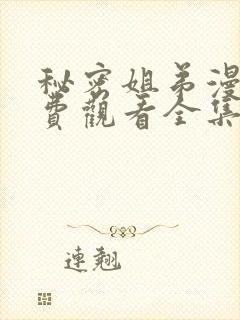 秘密姐弟漫
費觀看全集
連翹